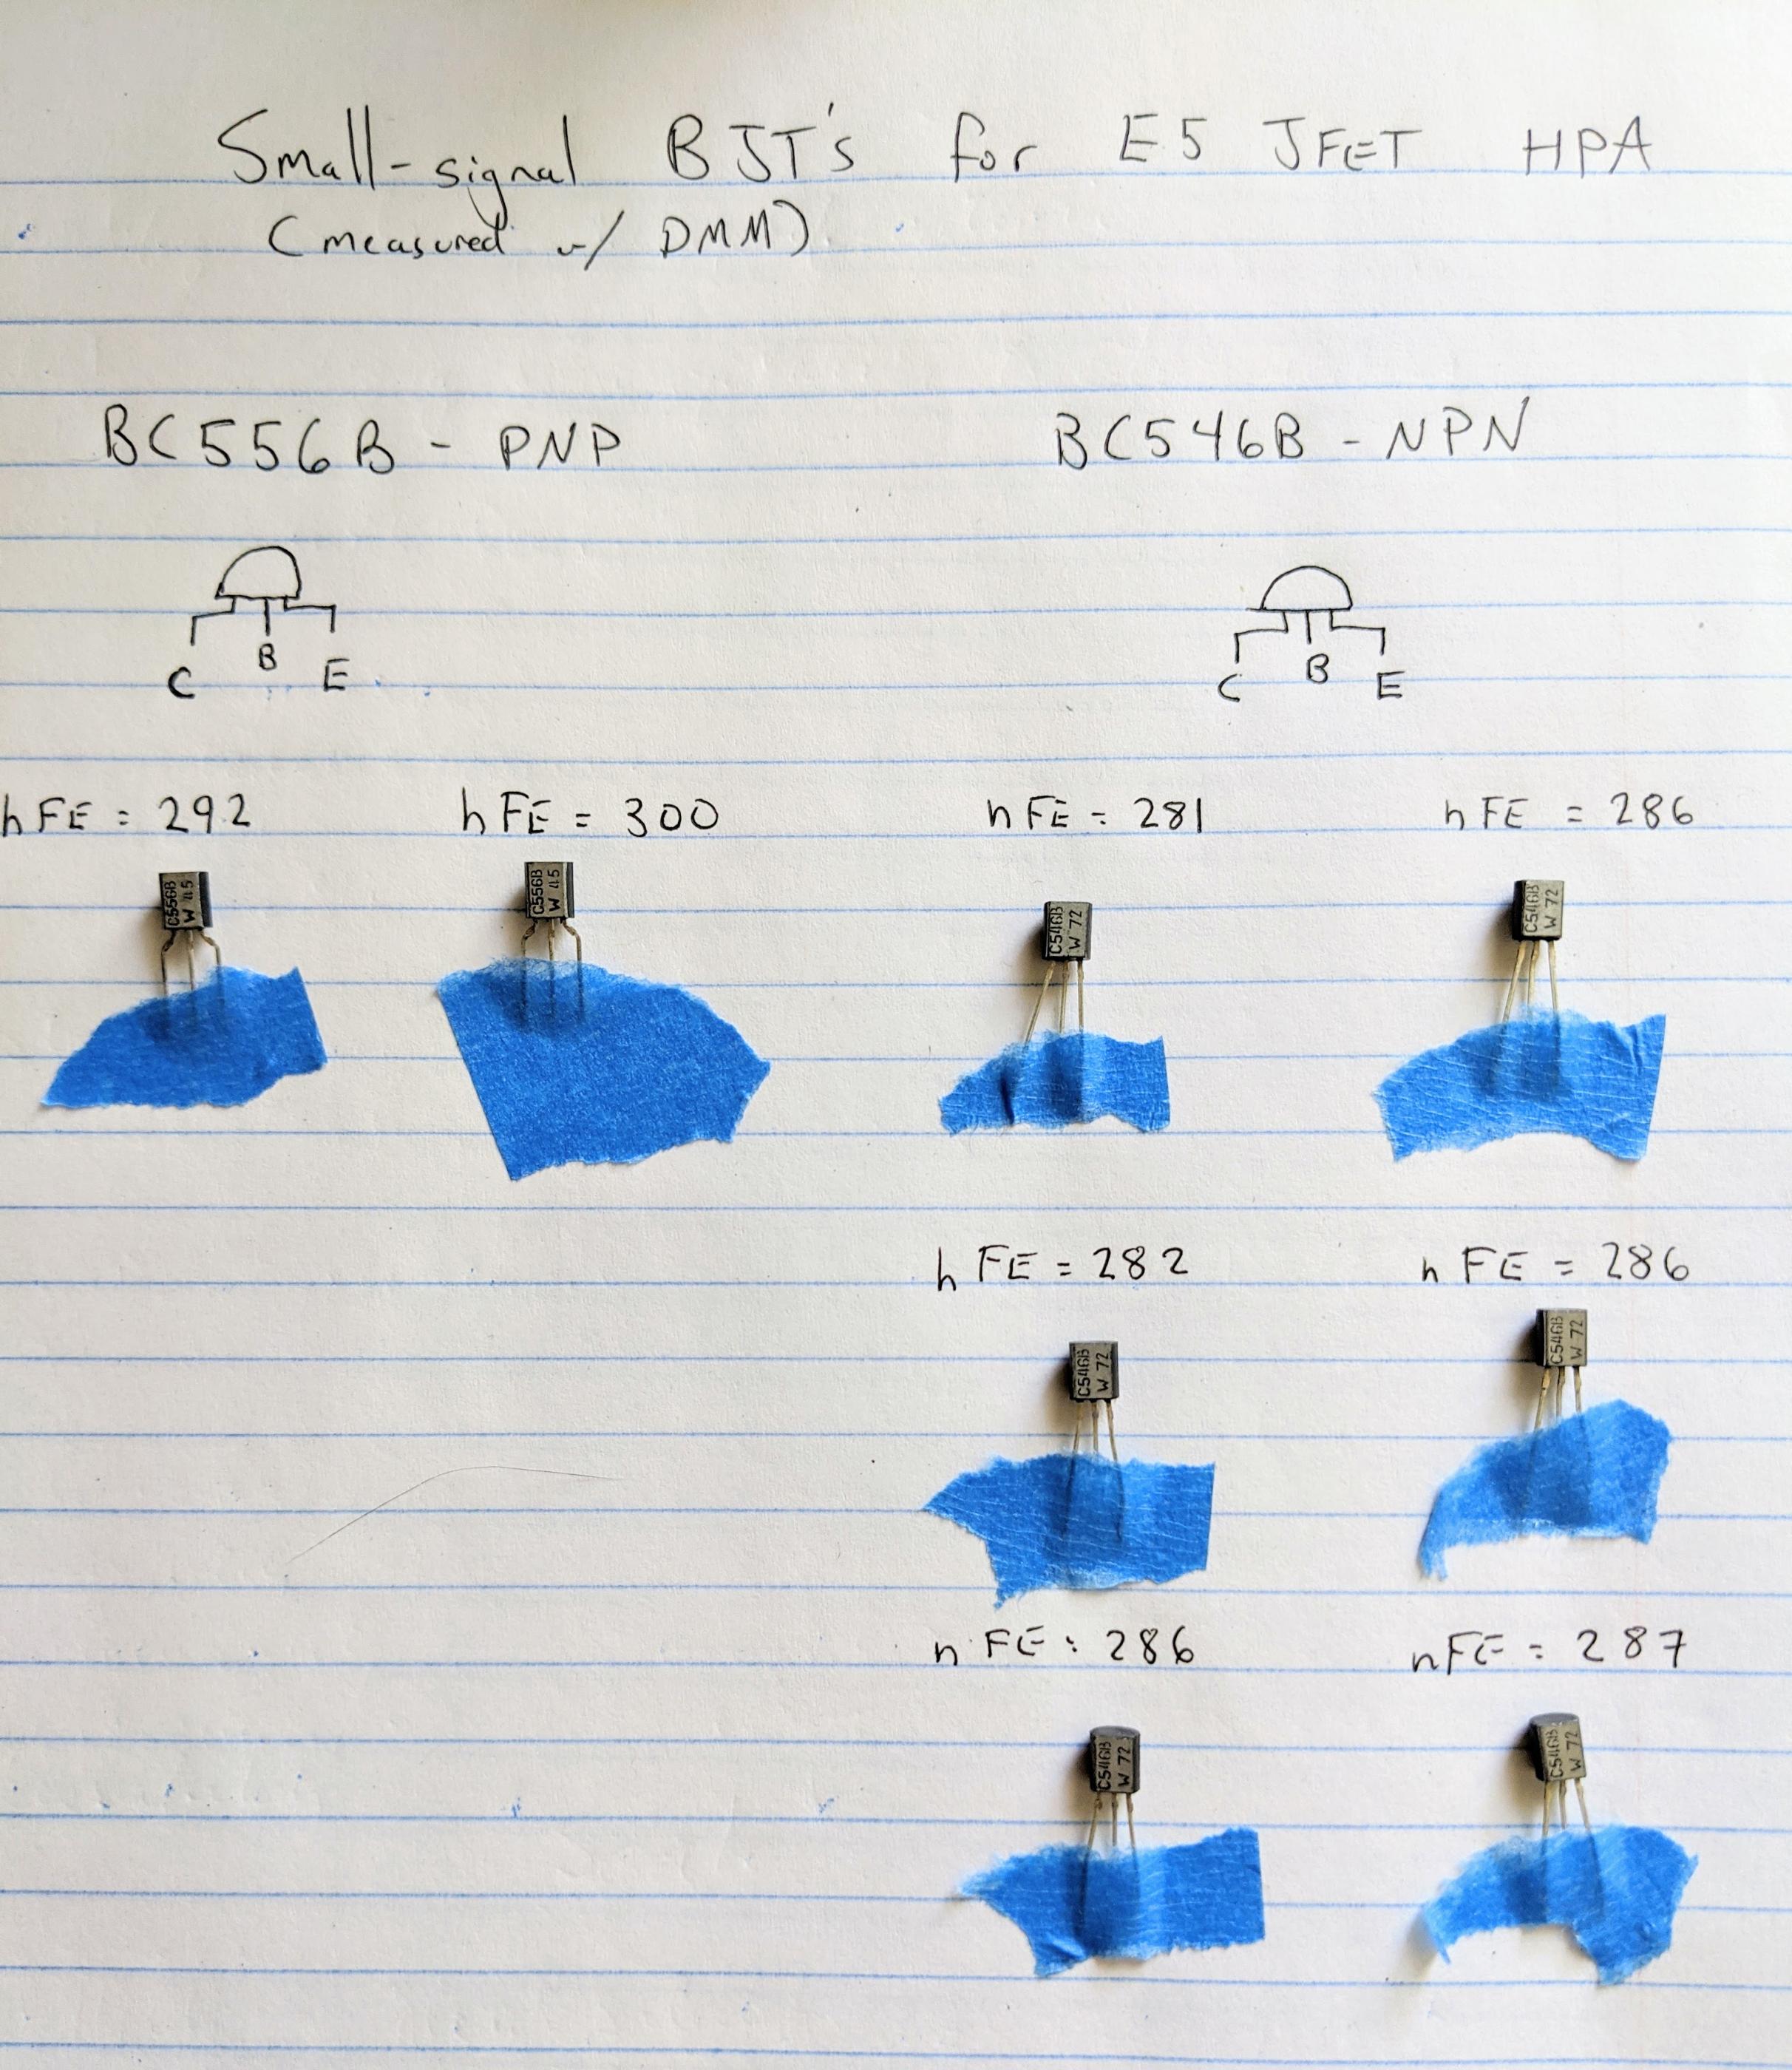 Small-signal BJT's for E5 JFET HPA
(measured w/ DMM)
BC556B - PNP
BC546B - NPN
C B E
C B E
hFE = 292
hFE = 300
hFE = 281
hFE = 286
C556B
W 45
C556B
W 45
C546B
W 72
C546B
W 72
hFE = 282
hFE = 286
C546B
W 72
C546B
W 72
hFE = 286
hFE = 287
C546B
W 72
C546B
W 72